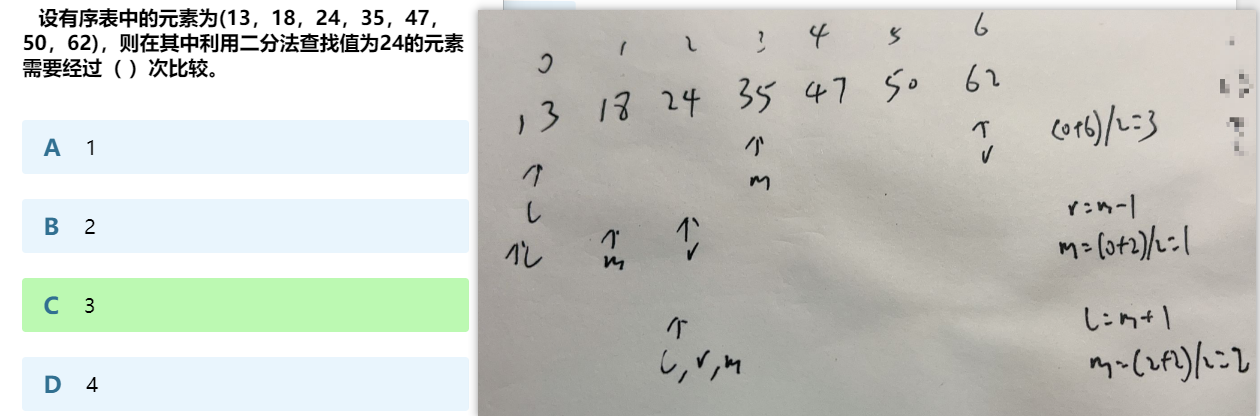 设有序表中的元素为(13，18，24，35，47，
50，62)，则在其中利用二分法查找值为24的元素
需要经过（ ）次比较。
A 1
B 2
C 3
D 4
0 1 2 3 4 5 6
13 18 24 35 47 50 62
(0+6)/2=3
↑ ↑ ↑
l m r
r=m-1
↑l ↑m ↑r
m=(0+2)/2=1
l=m+1
↑
l,r,m
m=(2+2)/2=2